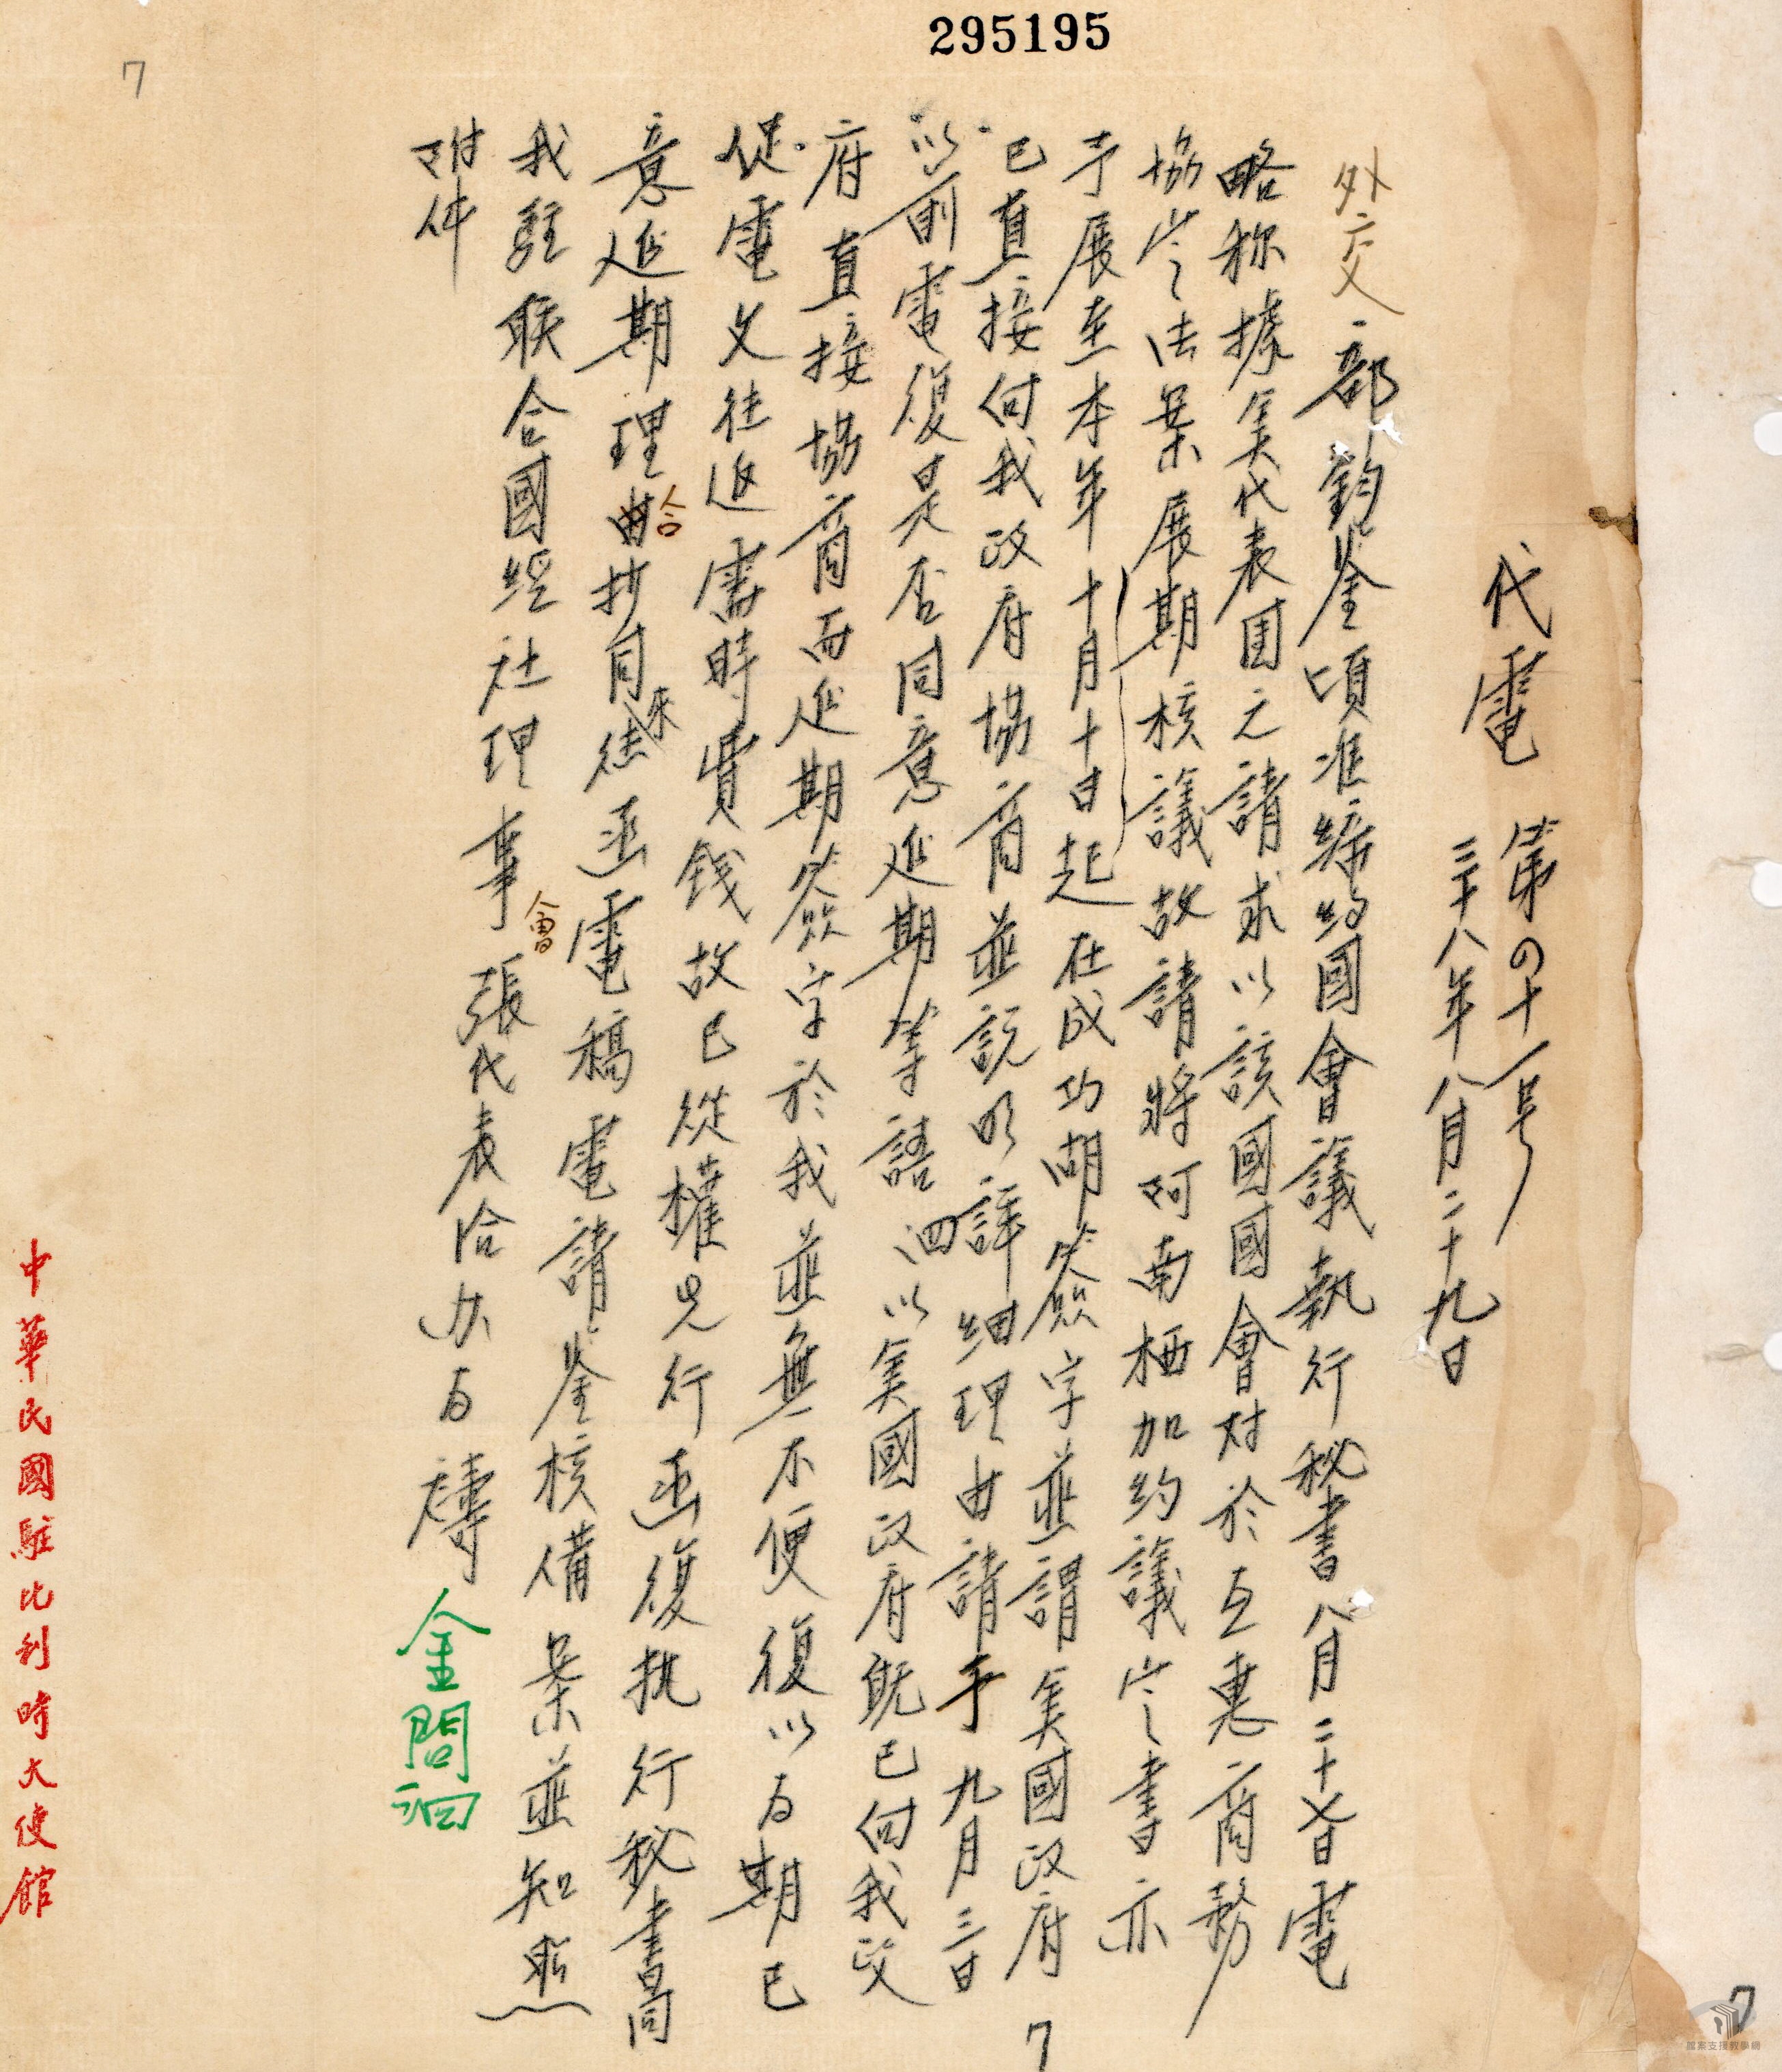 295195
7
代電 第四十一号
三十八年八月二十九日
外交部鈞鑒頃准締約國會議執行秘書八月二十七日電
略称據美代表团之請求以該國國會对於互惠商務
協定法案展期核議故請將阿南栖加约議定書亦
予展至本年十月十日起在成功湖簽字並謂美國政府
已直接向我政府協商並説明詳細理由請予九月三日
以前電復是否同意延期等語泗以美國政府既已向我政
府直接協商而延期簽字於我並無不便復以为期已
促電文往返需時費錢故已從權先行函復执行秘書同
意延期理合抄同來函電稿電請鑒核備案並知照
我駐联合國經社理事會張代表洽办为禱 金問泗
附件
中華民國駐比利時大使館
7
7
檔案支援教學網